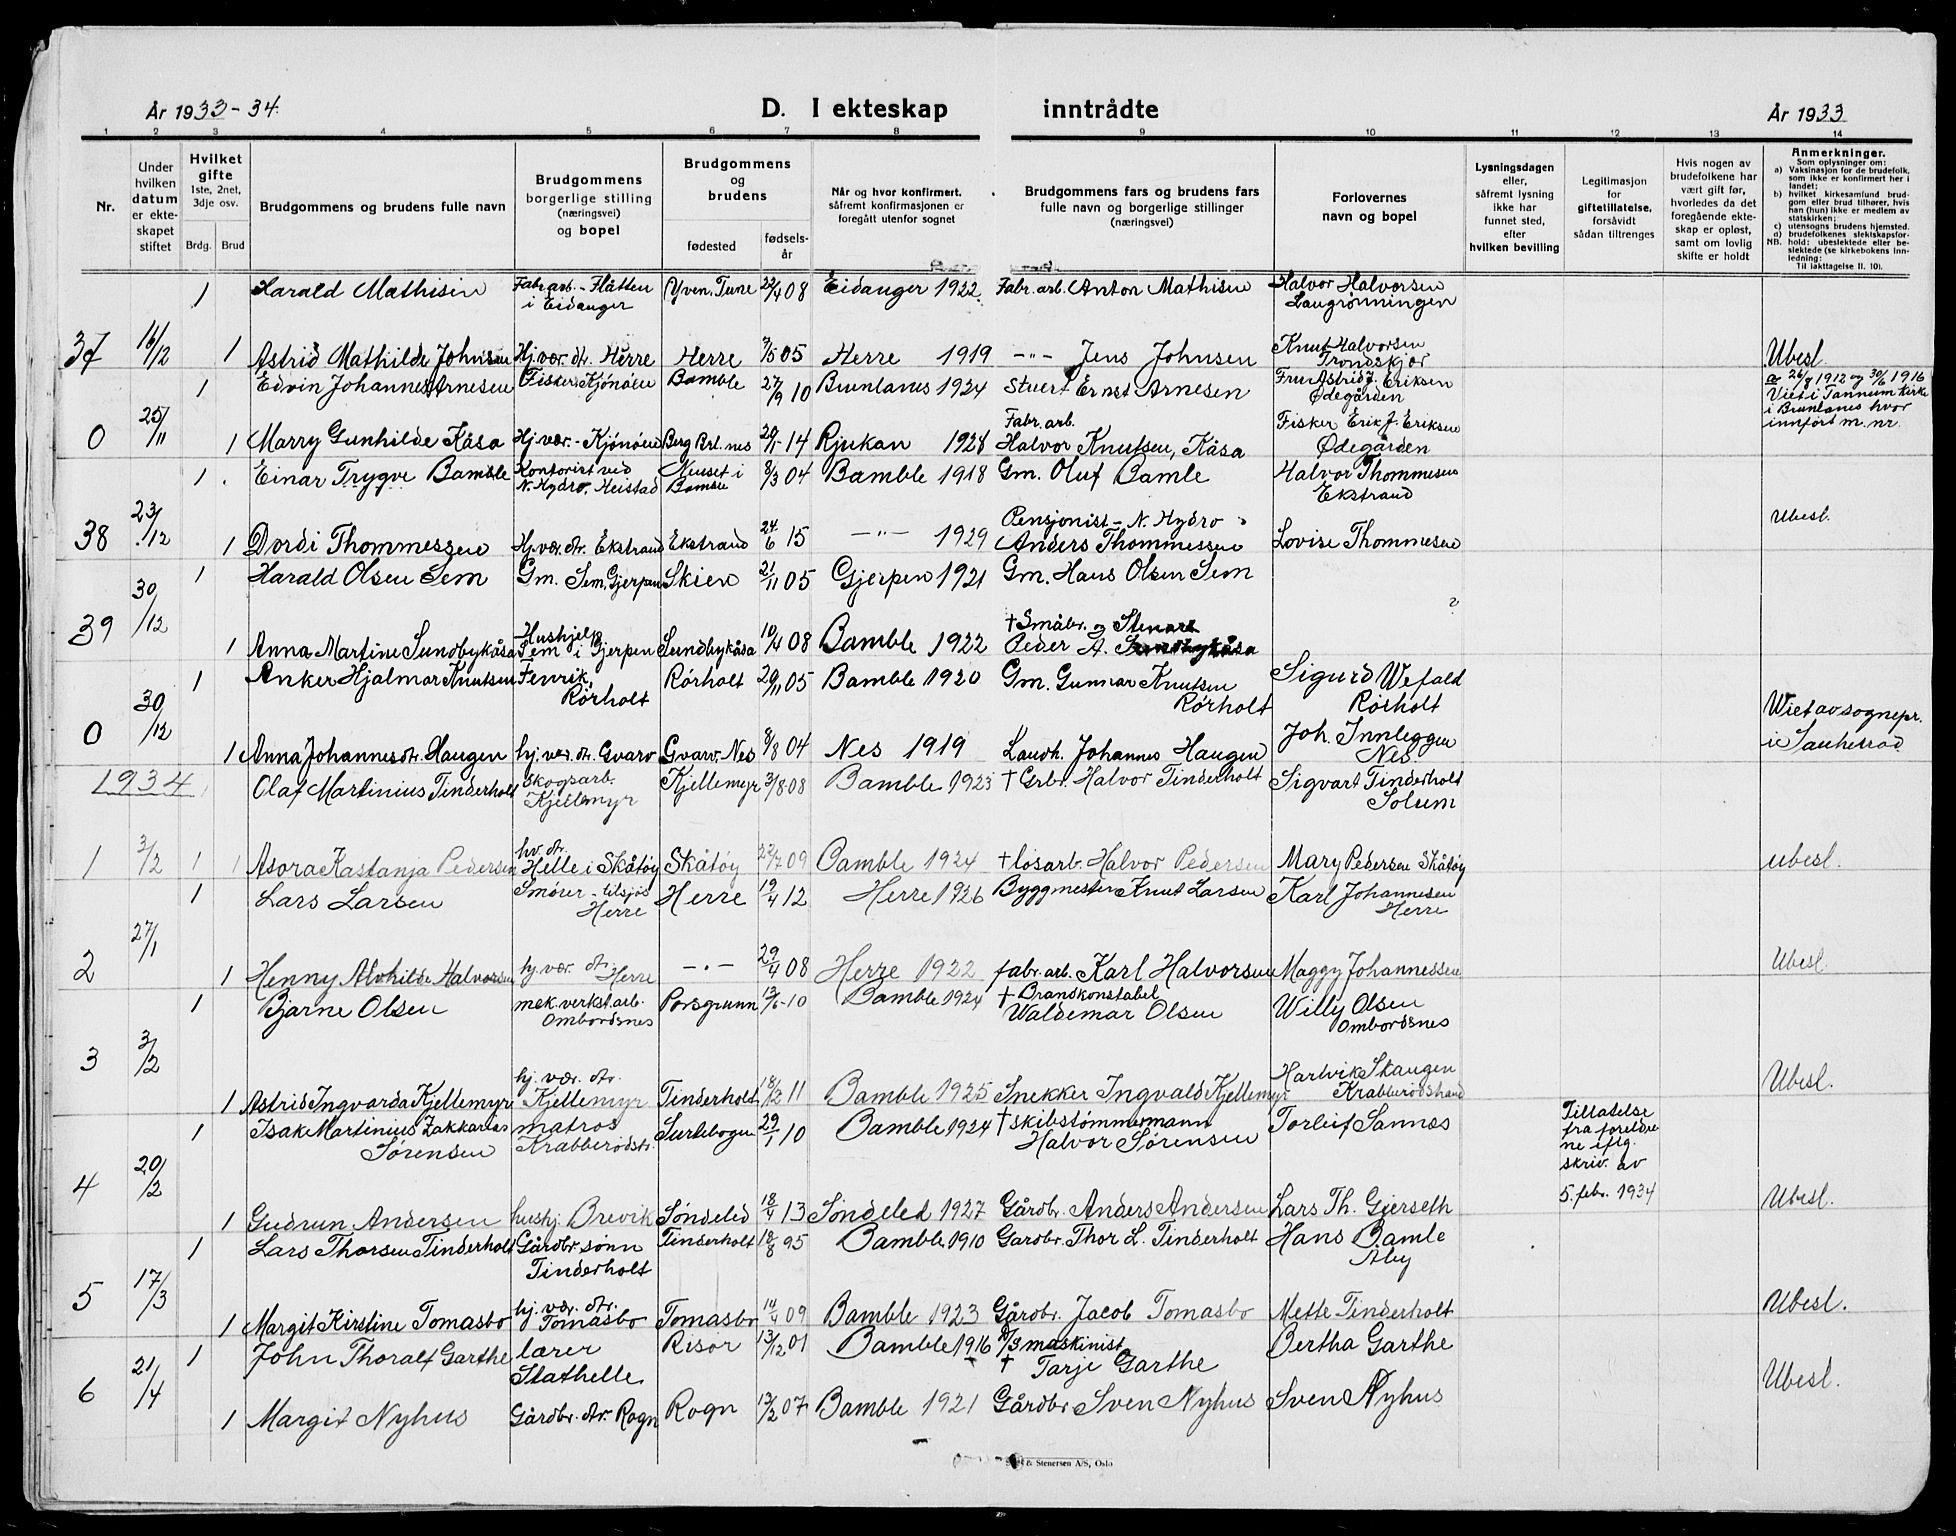 År 1933-34.
D. I ekteskap inntrådte
År 1933
1 2 3 4 5 6 7 8 9 10 11 12 13 14
Nr.
Under hvilken datum er ekteskapet stiftet
Hvilket gifte 1ste, 2net, 3dje osv.
Brdg. Brud
Brudgommens og brudens fulle navn
Brudgommens borgerlige stilling (næringsvei) og bopel
Brudgommens og brudens
fødested fødselsår
Når og hvor konfirmert, såfremt konfirmasjonen er foregått utenfor sognet
Brudgommens fars og brudens fars fulle navn og borgerlige stillinger (næringsvei)
Forlovernes navn og bopel
Lysningsdagen eller, såfremt lysning ikke har funnet sted, efter hvilken bevilling
Legitimasjon for giftetillatelse, forsåvidt sådan tiltrenges
Hvis nogen av brudefolkene har vært gift før, hvorledes da det foregående ekteskap er opløst, samt om lovlig skifte er holdt
Anmerkninger.
Som oplysninger om:
a) Vaksinasjon for de brudefolk, som ikke er konfirmert her i landet;
b) hvilket kirkesamfund brudgom eller brud tilhører, hvis han (hun) ikke er medlem av statskirken;
c) utensogns brudens hjemsted.
d) brudefolkenes slektskapsforhold: ubeslektede eller beslektede (se kirkebokens innledning:
NB. Til iakttagelse II. 10).
1 Harald Mathisen Fabr.arb. - Flåtten i Eidanger Yven, Tune 22/4 08 Eidanger 1922 Fabr. arb. Anton Mathisen Halvor Halvorsen Laugrønningen
37 16/12 1 Astrid Mathilde Johnsen Hj.vær. dtr. Herre Herre 7/5 05 Herre 1919 -"- Jens Johnsen Knut Halvorsen Trondskjær Ubesl.
1 Edvin Johannes Arnesen Fisker Kjönöen Bamble 27/9 10 Brunlanes 1924 Stuert Ernst Arnesen Fru Astrid J. Eriksen Ødegården a 26/8 1912 og 30/6 1916
0 25/11 1 Marry Gunhilde Kåsa Hj.vær. - Kjönöen Berg Brl.nes 20/1 14 Rjukan 1928 Fabr. arb. Halvor Knutsen, Kåsa Fisker Erik J. Eriksen Ødegården Viet i Tannum kirke i Brunlanes hvor innført m. nr.
1 Einar Trygve Bamble Kontorist ved N. Hydro, Heistad i Bamble 8/3 04 Bamble 1918 Gm. Oluf Bamle Halvor Thommesen Ekstrand
38 23/12 1 Dordi Thommessen Hj.vær. dtr. Ekstrand Ekstrand 24/6 15 -"- 1929 Pensjonist - N. Hydro Anders Thommessen Lovise Thommesen Ubesl.
1 Harald Olsen Sem Gm. Sem, Gjerpen Skien 21/11 05 Gjerpen 1921 Gm. Hans Olsen Sem
39 30/12 1 Anna Martine Sundbykåsa Hushjelp Sem i Gjerpen Sundbykåsa 10/4 08 Bamble 1922 † Småbr. og Stenarb. Peder A. Sundbykåsa
1 Anker Hjalmar Knutsen Fenrik, Rørholt Rørholt 29/11 05 Bamble 1920 Gm. Gunnar Knutsen Rørholt Sigurd Wefald Rørholt
0 30/12 1 Anna Johannesdtr. Haugen hj. vær. dtr. Gvarv Gvarv, Nes 8/8 04 Nes 1919 Landh. Johannes Haugen Joh. Innleggen Nes Wiet av sognepr. i Sauherad
1934 Olaf Martinius Tinderholt Skogsarb. Kjellemyr Kjellemyr 3/8-08 Bamble 1923 † Grbr. Halvor Tinderholt Sigvart Tinderholt Solum
1 3/2 1 1 Asora Kastanja Pedersen hv. dtr. Helle i Skåtøy Skåtøy 22/7 09 Bamble 1924 † løsarb. Halvor Pedersen Mary Pedersen Skåtøy ubesl.
1 Lars Larsen Smører - tilsjøs Herre Herre 19/4 12 Herre 1926 Byggmester Knut Larsen Karl Johannesen Herre
2 27/1 1 Henny Alvhilde Halvorsen hj. vær. dtr. Herre -"- 29/4 08 Herre 1922 fabr. arb. Karl Halvorsen Maggy Johannessen Ubesl.
1 Bjarne Olsen mek. verkst.arb. Ombordsnes Porsgrunn 13/6-10 Bamble 1924 † Brandkonstabel Waldemar Olsen Willy Olsen Ombordsnes
3 3/2 1 Astrid Ingvarda Kjellemyr hj. vær. dtr. Kjellemyr Tinderholt 18/12 11 Bamble 1925 Snekker Ingvald Kjellemyr Hartvik Skaugen Krabberødstrand Ubesl.
1 Isak Martinius Zakkarias Sørensen matros Krabberødstr. Surtebogen 29/1 10 Bamble 1924 † skibstømmermann Halvor Sørensen Torleif Sannes Tillatelse fra foreldrene iflg. skriv. av 5. febr. 1934
4 20/2 1 Gudrun Andersen hushj. Brevik Søndeled 18/4 13 Söndeled 1927 Gårdbr. Anders Andersen Lars Th. Gierseth Ubesl.
1 Lars Thorsen Tinderholt Gårdbr.sønn Tinderholt Tinderholt 18/8 95 Bamble 1910 Gardbr. Thor L. Tinderholt Hans Bamle Aby
5 17/3 1 Margit Kirstine Tomasbo hj. vær. dtr. Tomasbo Tomasbo 14/4 09 Bamble 1923 Gårdbr. Jacob Tomasbo Mette Tinderholt Ubesl.
1 John Thoralf Garthe lærer Stathelle Risør 13/12 01 Bamble 1916 D/S maskinist † Tarje Garthe Bertha Garthe
6 21/4 1 Margit Nyhus Gårdbr. dtr. Rogn Rogn 13/2 07 Bamble 1921 Gårdbr Sven Nyhus Sven Nyhus Ubesl.
& Stenersen A/S, Oslo